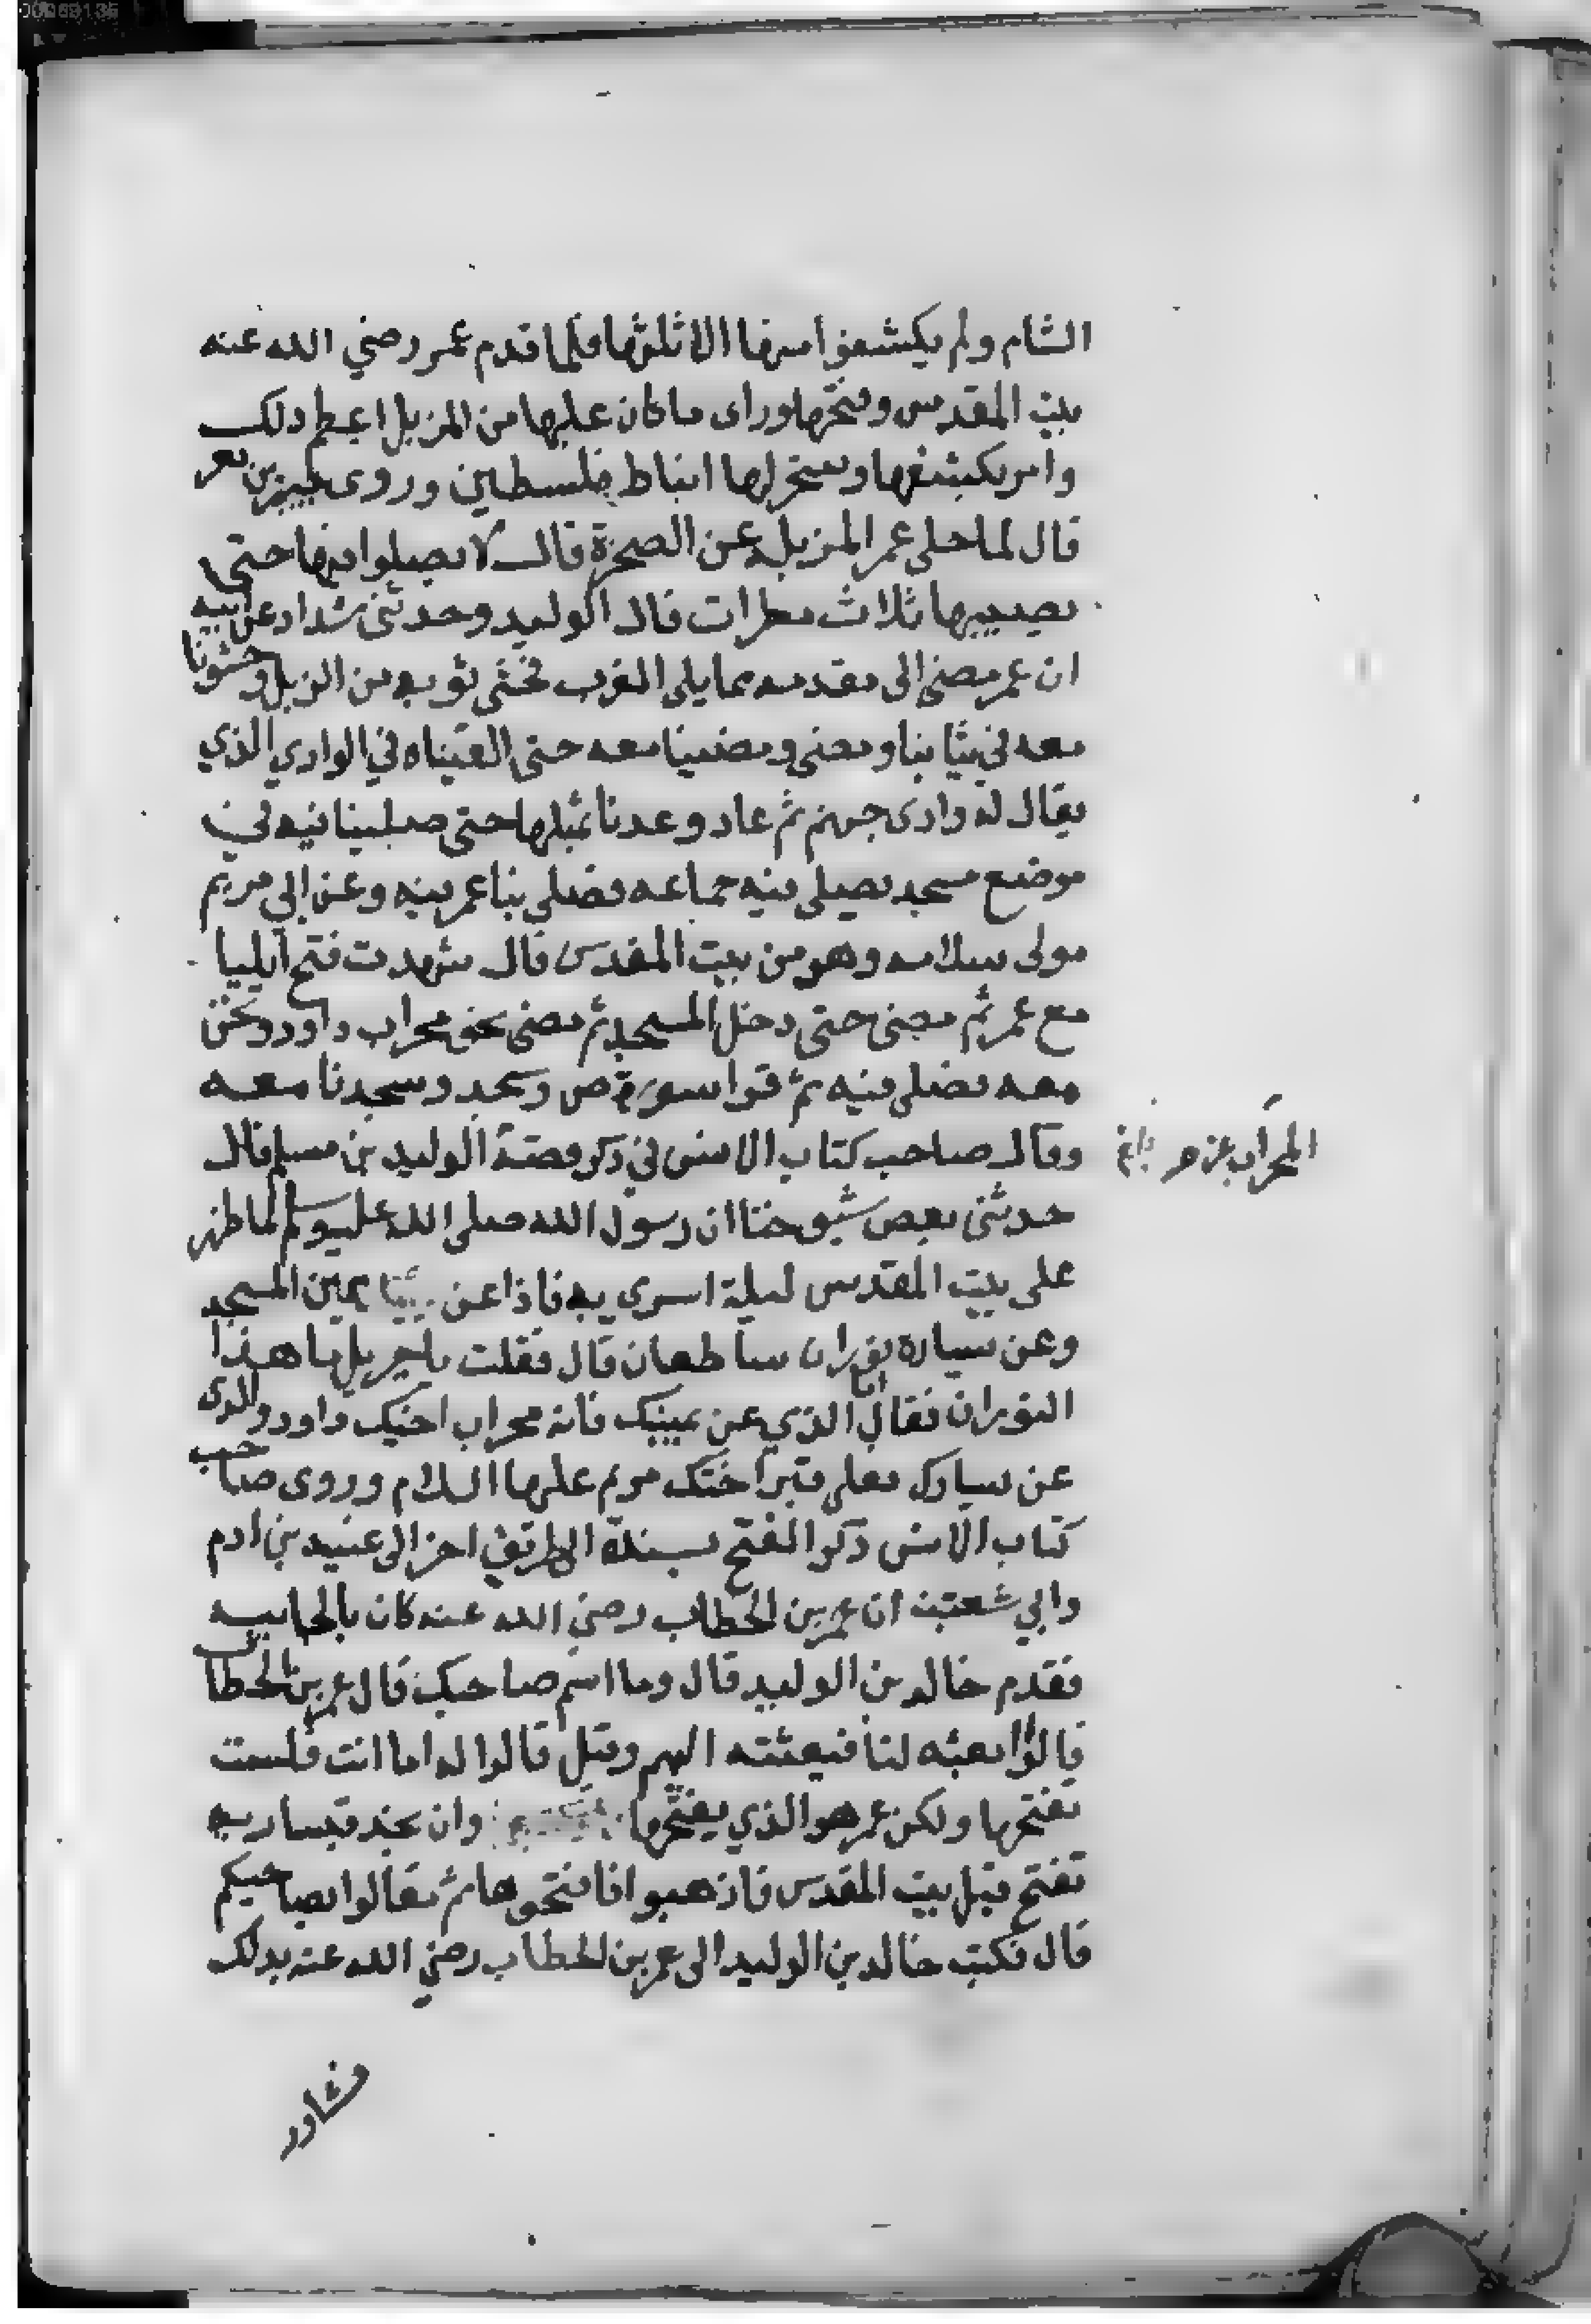 الشام ولم يكشفوا منها الا ثلثها فلما قدم عمر رضي الله عنه
بيت المقدس وفتحها وراى ما كان عليها من المزبل اعظم ذلك
وامر بكشفها وسخر لها انباط فلسطين وروى جبير بن نعر
قال لما جلى عمر المزبله عن الصخرة قال لا تصلوا فيها حتى
تصيبها ثلاث مطرات قال الوليد وحدثنى شداد عن ابيه
ان عمر مضى الى مقدمه مما يلى الغرب فحثى ثوبه من الزبل وحثونا
معه في ثيابنا ومضى ومضينا معه حتى القيناه في الوادي الذي
يقال له وادى جهنم ثم عاد وعدنا بمثلها حتى صلينا فيه في
موضع مسجد يصلى فيه جماعه فصلى بنا عمر فيه وعن ابي مريم
مولى سلامه وهو من بيت المقدس قال شهدت فتح ايليا
مع عمر ثم مضى حتى دخل المسجد ثم مضى نحو محراب داود ونحن
معه فصلى فيه ثم قرا سورة ص وسجد وسجدنا معه
وقال صاحب كتاب الانس في ذكر قصة الوليد بن مسلم قال
المحراب
حدثنى بعض شيوخنا ان رسول الله صلى الله عليه وسلم لما ظهر
على بيت المقدس ليلة اسرى به فاذا عن يمين المسجد
وعن يساره نوران ساطعان قال فقلت يا جبريل ما هذا
النوران فقال اما الذي عن يمينك فانه محراب اخيك داود والذى
عن يسارك فعلى قبر اختك مريم عليها السلام وروى صاحب
كتاب الانس ذكر الفتح بسنده الطريق اخر الى عبيد بن ادم
وابي شعيب ان عمر بن الخطاب رضي الله عنه كان بالجابيه
فقدم خالد بن الوليد قال وما اسم صاحبك قال عمر بن الخطاب
قالوا انعته لنا فنعته اليهم وقيل قالوا له اما انت فلست
تفتحها ولكن عمر هو الذي يفتحها وان نجد قيساريه
تفتح قبل بيت المقدس فاذهبوا فافتحوها ثم تعالوا بصاحبكم
قال فكتب خالد بن الوليد الى عمر بن الخطاب رضي الله عنه بذلك
فشاور